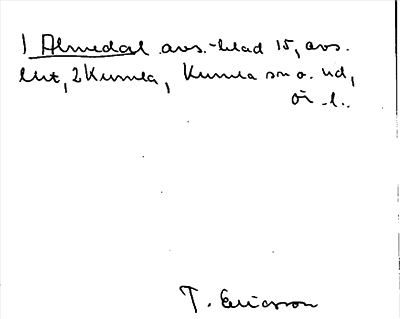 1 Almedal avs.-blad 15, avs.
lht, 2 Kumla, Kumla sn o. hd,
Ör. l.
T. Ericsson